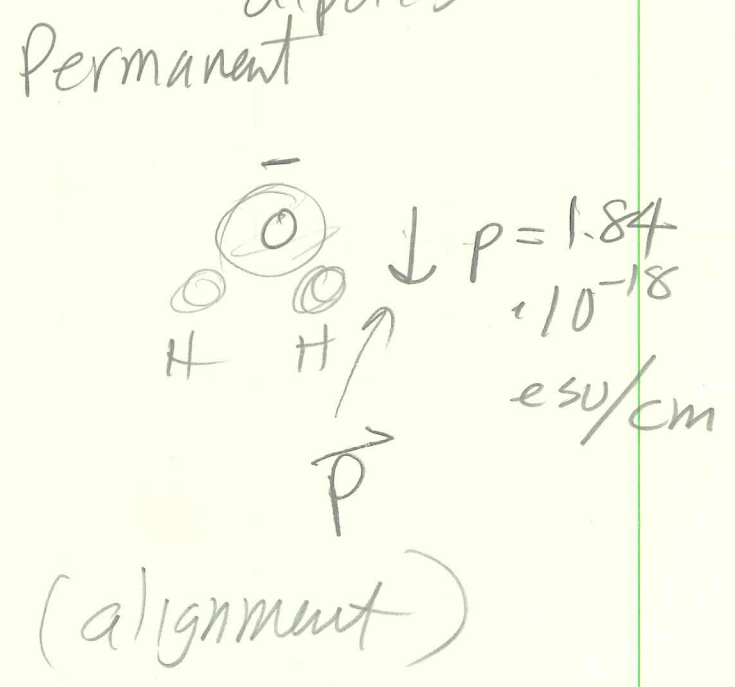 dipoles
Permanent
−
O
H H
p = 1.84
·10⁻¹⁸
esu/cm
p⃗
(alignment)